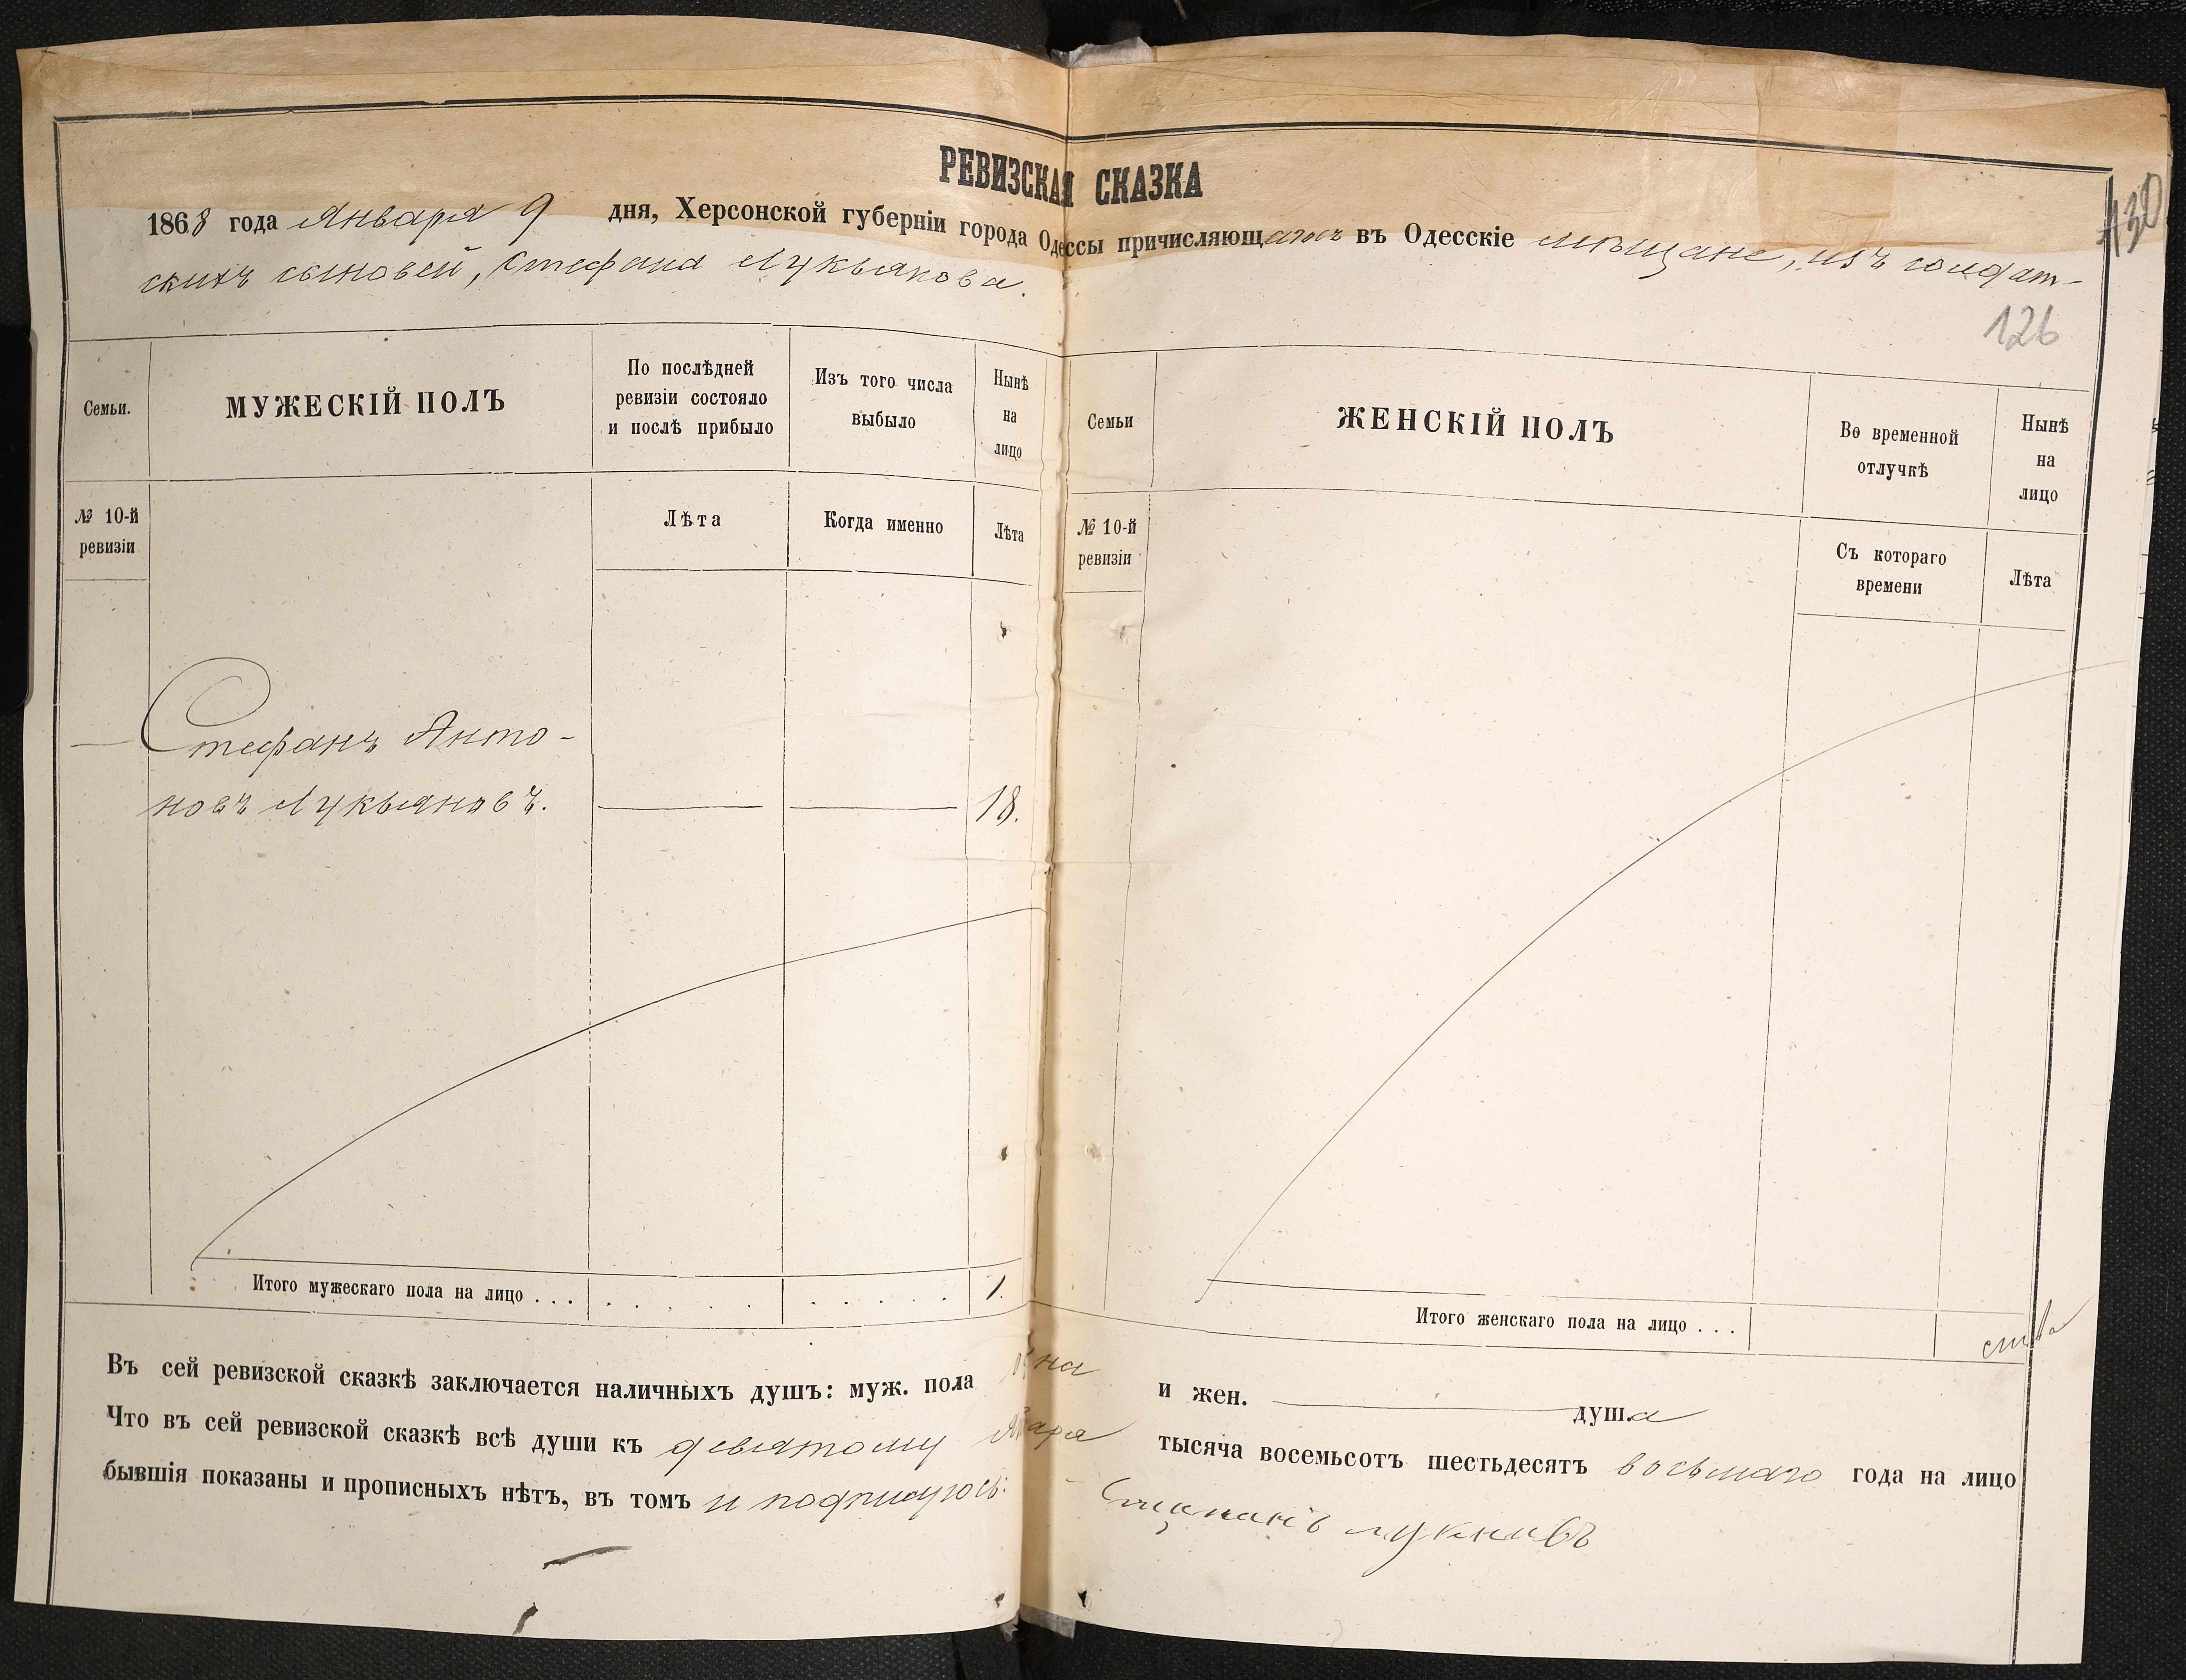 РЕВИЗСКАЯ СКАЗКА
1868 года Января 9 дня, Херсонской губерніи города Одессы причисляющагося въ Одесскіе мѣщане, изъ солдат-
скихъ сыновей, Стефана Лукьянова.
130
126
Семьи.
МУЖЕСКІЙ ПОЛЪ
По послѣдней
ревизіи состояло
и послѣ прибыло
Изъ того числа
выбыло
Нынѣ
на
лицо
№ 10-й
ревизіи
Лѣта
Когда именно
Лѣта
Стефанъ Анто-
новъ Лукьяновъ.
18.
Итого мужескаго пола на лицо . . .
1.
Семьи
ЖЕНСКІЙ ПОЛЪ
Во временной
отлучкѣ
Нынѣ
на
лицо
№ 10-й
ревизіи
Съ котораго
времени
Лѣта
Итого женскаго пола на лицо . . .
Въ сей ревизской сказкѣ заключается наличныхъ душъ: муж. пола одна и жен. душ.а
Что въ сей ревизской сказкѣ всѣ души къ девятому Января тысяча восемьсотъ шестьдесятъ восьмаго года на лицо
бывшія показаны и прописныхъ нѣтъ, въ томъ и подпишусь: